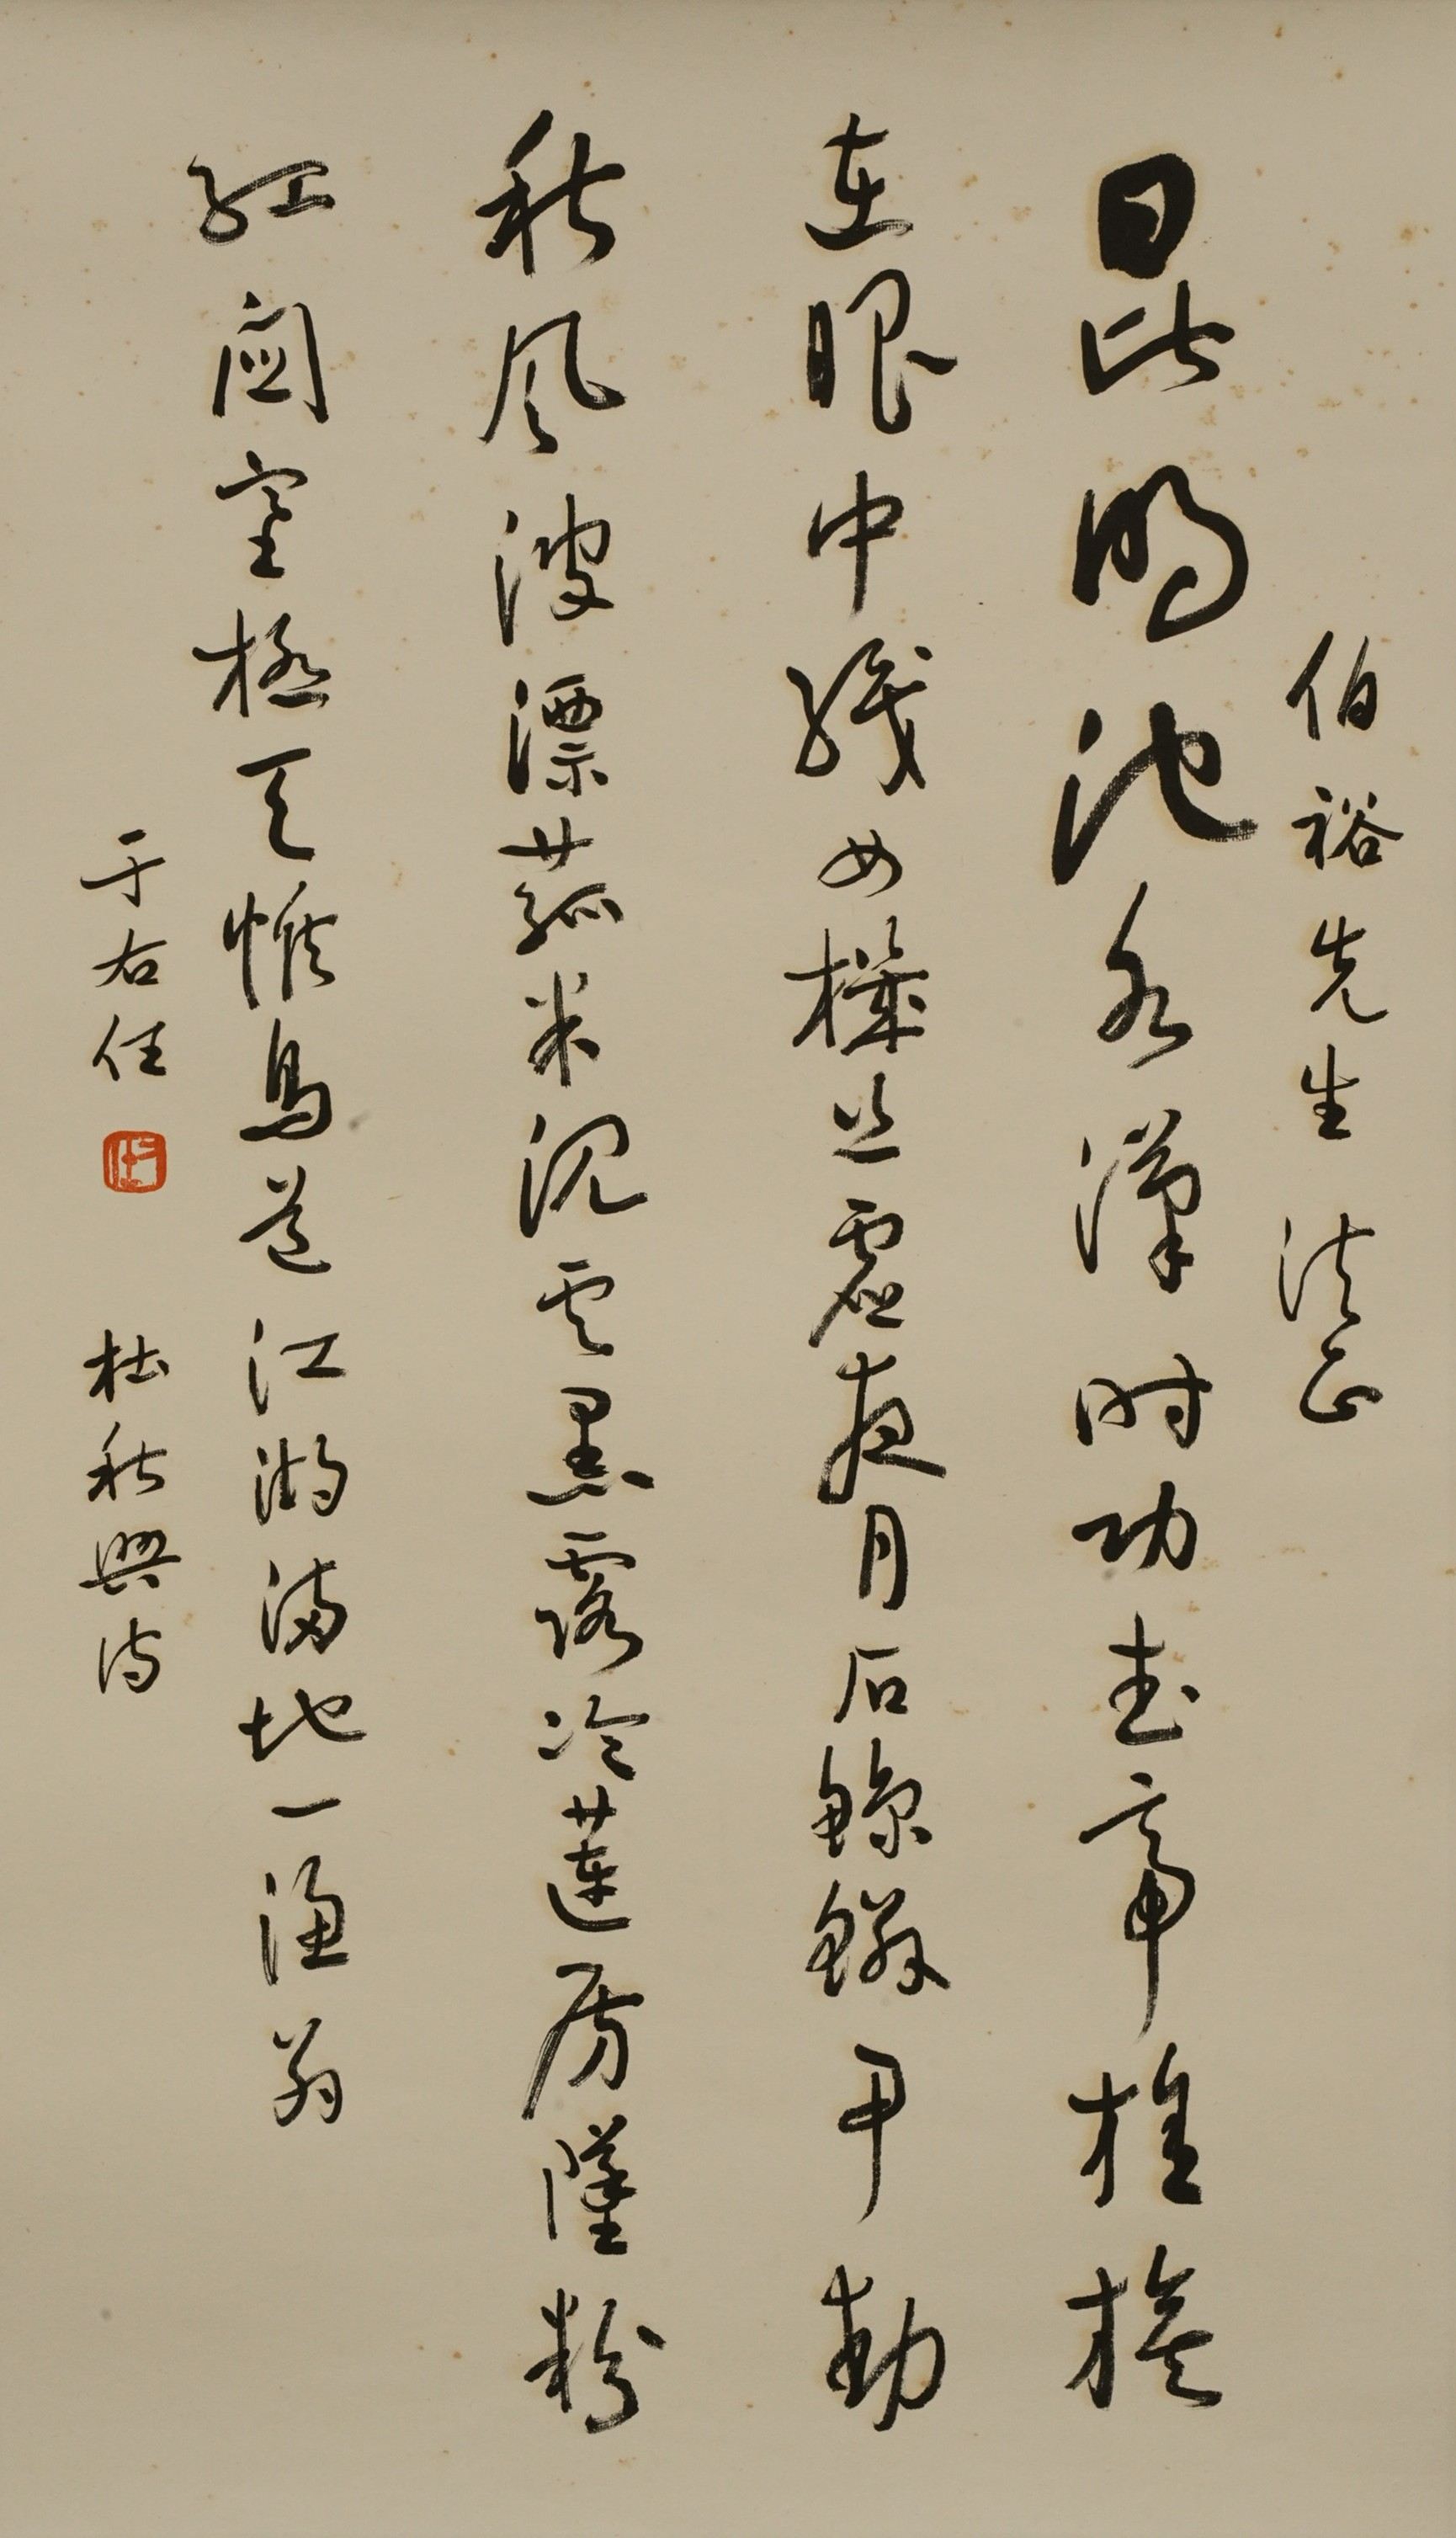 伯裕先生 法正
昆明池水漢時功武帝旌旗
在眼中織女機絲虛夜月石鯨鱗甲動
秋風波漂菰米沉雲黑露冷蓮房墜粉
紅關塞極天惟鳥道江湖滿地一漁翁
于右任 杜秋興詩